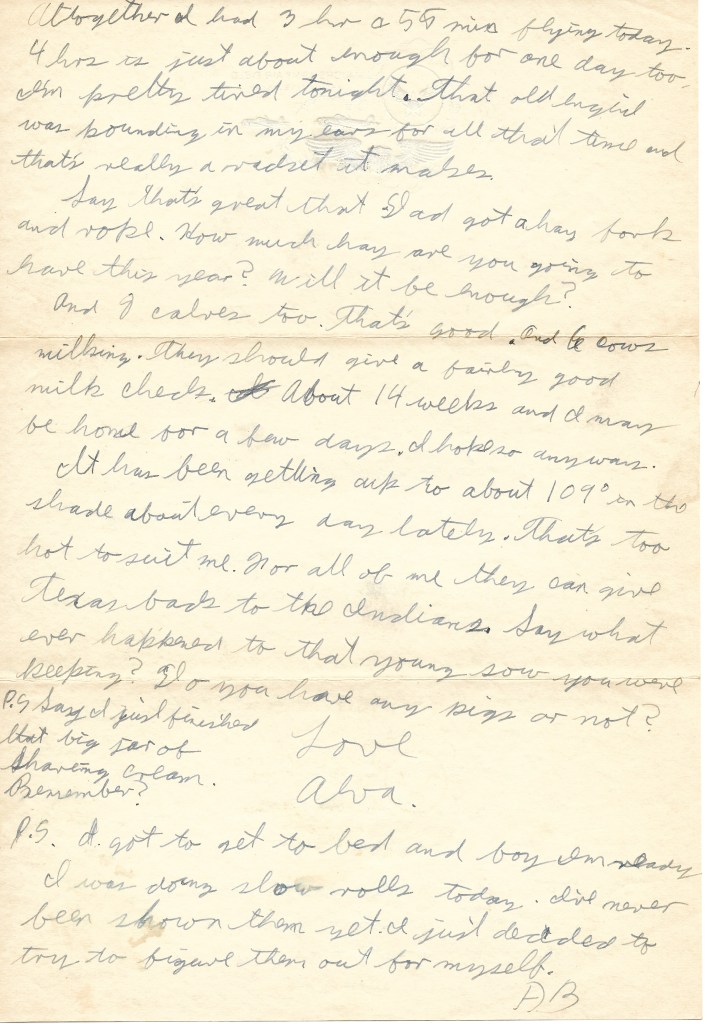 Altogether I had 3 hr & 55 min flying today.
4 hrs is just about enough for one day too.
I'm pretty tired tonight. That old engine
was pounding in my ears for all that time and
that's really a radset it makes.
Say that's great that Dad got a hay fork
and rope. How much hay are you going to
have this year? Will it be enough?
And 9 calves too. That's good. And 6 cows
milking. They should give a fairly good
milk check. About 14 weeks and I may
be home for a few days. I hope so anyway.
It has been getting up to about 109° in the
shade about every day lately. That's too
hot to suit me. For all of me they can give
Texas back to the Indians. Say what
ever happened to that young sow you were
keeping? Do you have any pigs or not?
Love
Alva.
P.S Say I just finished
that big jar of
Shaving cream.
Remember?
P.S. I got to get to bed and boy I'm ready
I was doing slow rolls today. I've never
been shown them yet. I just decided to
try to figure them out for myself.
AB